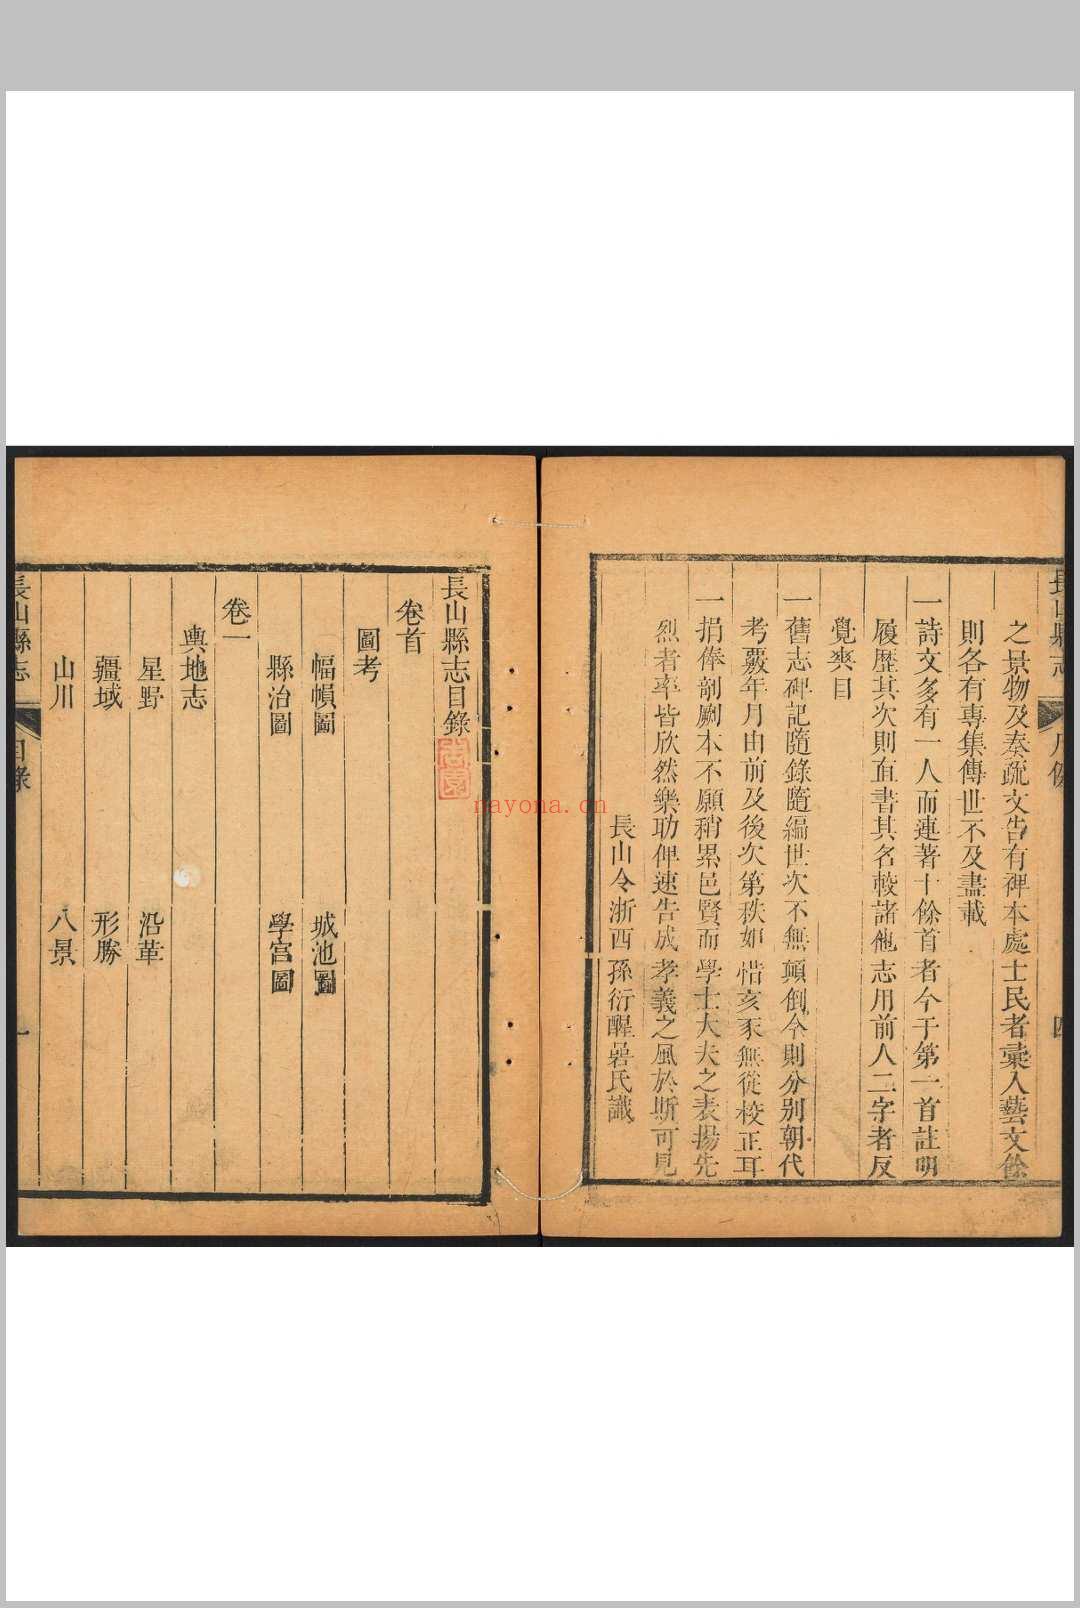 之景物及奏疏文告有裨本處士民者彙入藝文餘
則各有專集傳世不及盡載
一詩文多有一人而連著十餘首者今于第一首註明
履歷其次則直書其名較諸他志用前人二字者反
覺爽目
一舊志碑記隨錄隨編世次不無顛倒今則分別朝代
考覈年月由前及後次第秩如惜亥豕無從校正耳
一捐俸剞劂本不願稍累邑賢而學士大夫之表揚先
烈者率皆欣然樂助俾速告成孝義之風於斯可見
長山令浙西孫衍醒嵒氏識
長山縣志目錄
卷首
圖考
幅幀圖 城池圖
縣治圖 學宮圖
卷一
輿地志
星野 沿革
疆域 形勝
山川 八景
長山縣志 目錄 一
nayona.cn